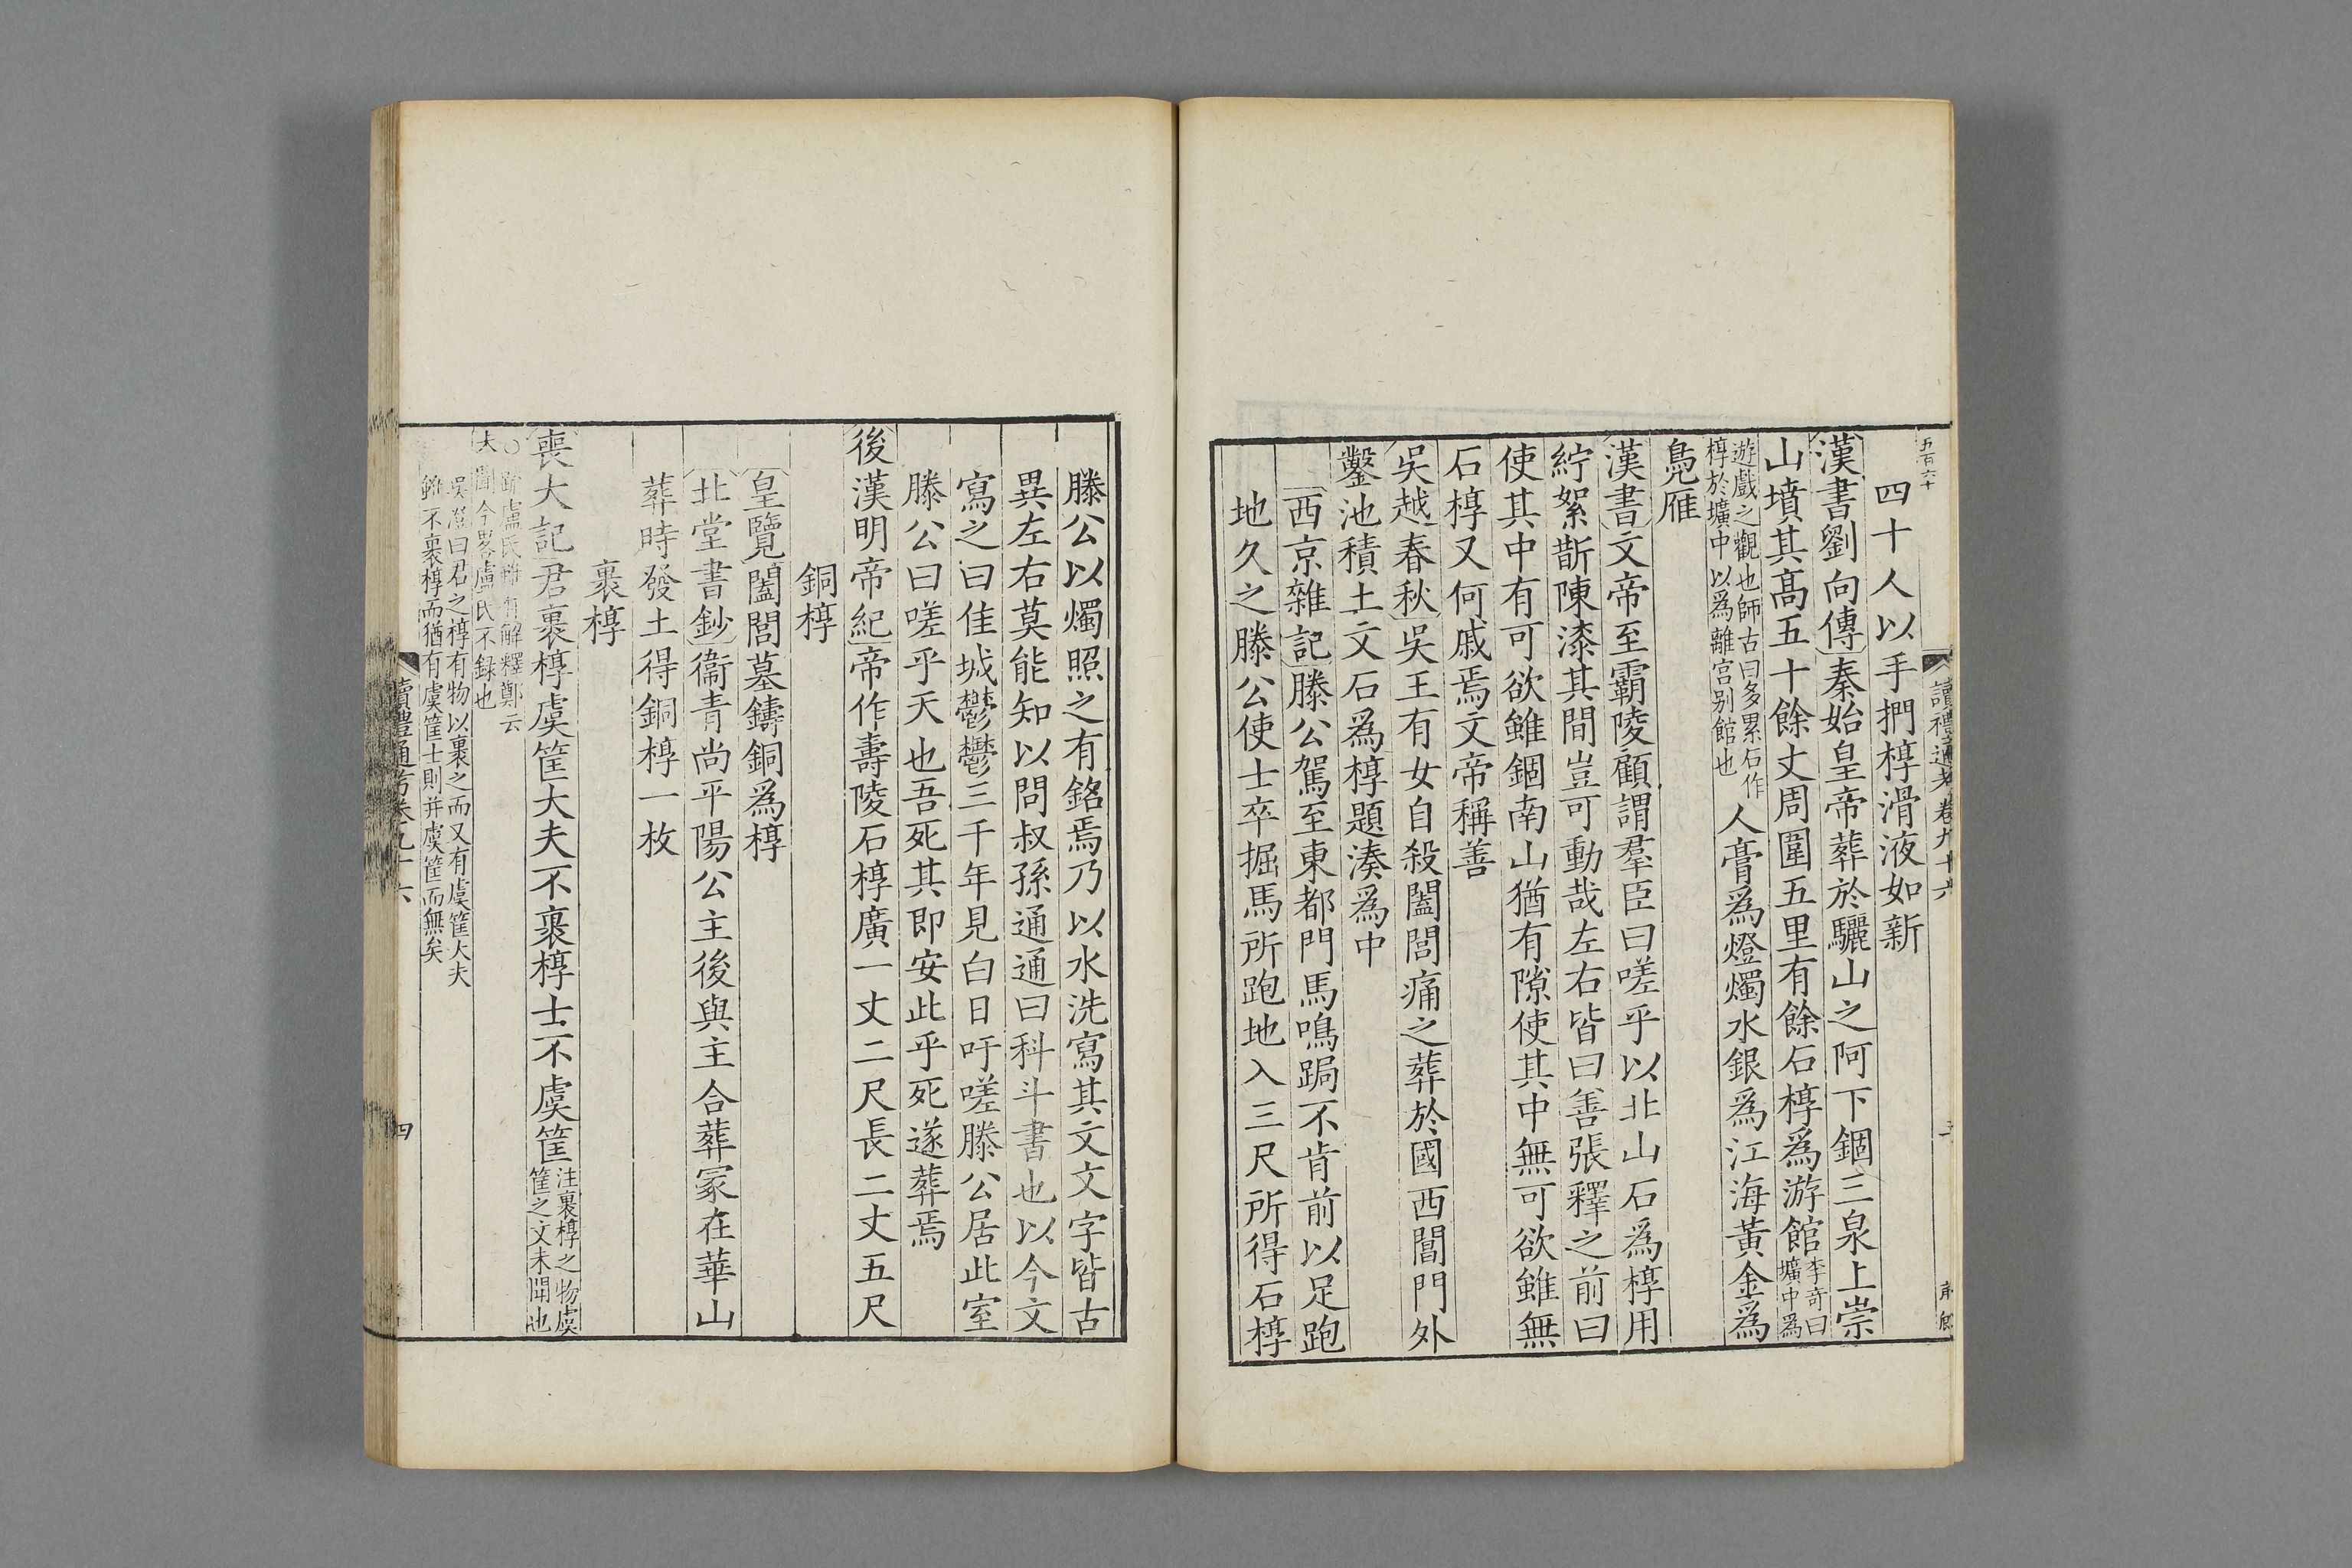 五百六十
讀禮通考卷九十六
四十人以手捫椁滑液如新
漢書劉向傳秦始皇帝葬於驪山之阿下錮三泉上崇
山墳其髙五十餘丈周圍五里有餘石椁爲游館李竒曰壙中爲
遊戲之觀也師古曰多累石作椁於壙中以爲離宫别館也人膏爲燈燭水銀爲江海黃金爲
鳧雁
漢書文帝至霸陵顧謂羣臣曰嗟乎以北山石爲椁用
紵絮斮陳漆其間豈可動哉左右皆曰善張釋之前曰
使其中有可欲雖錮南山猶有隙使其中無可欲雖無
石椁又何戚焉文帝稱善
吳越春秋吳王有女自殺闔閭痛之葬於國西閶門外
鑿池積土文石爲椁題湊爲中
西京雜記滕公駕至東都門馬鳴跼不肯前以足跑
地久之滕公使士卒掘馬所跑地入三尺所得石椁
滕公以燭照之有銘焉乃以水洗寫其文文字皆古
異左右莫能知以問叔孫通通曰科斗書也以今文
寫之曰佳城鬱鬱三千年見白日吁嗟滕公居此室
滕公曰嗟乎天也吾死其即安此乎死遂葬焉
後漢明帝紀帝作壽陵石椁廣一丈二尺長二丈五尺
銅椁
皇覽闔閭墓鑄銅爲椁
北堂書鈔衞青尚平陽公主後與主合葬冢在華山
葬時發土得銅椁一枚
裹椁
喪大記君裹椁虞筐大夫不裹椁士不虞筐注裹椁之物虞筐之文未聞也
○疏盧氏雖有解釋鄭云未聞今畧盧氏不録也
吳澄曰君之椁有物以裹之而又有虞筐大夫雖不裹椁而猶有虞筐士則并虞筐而無矣
讀禮通考卷九十六
四